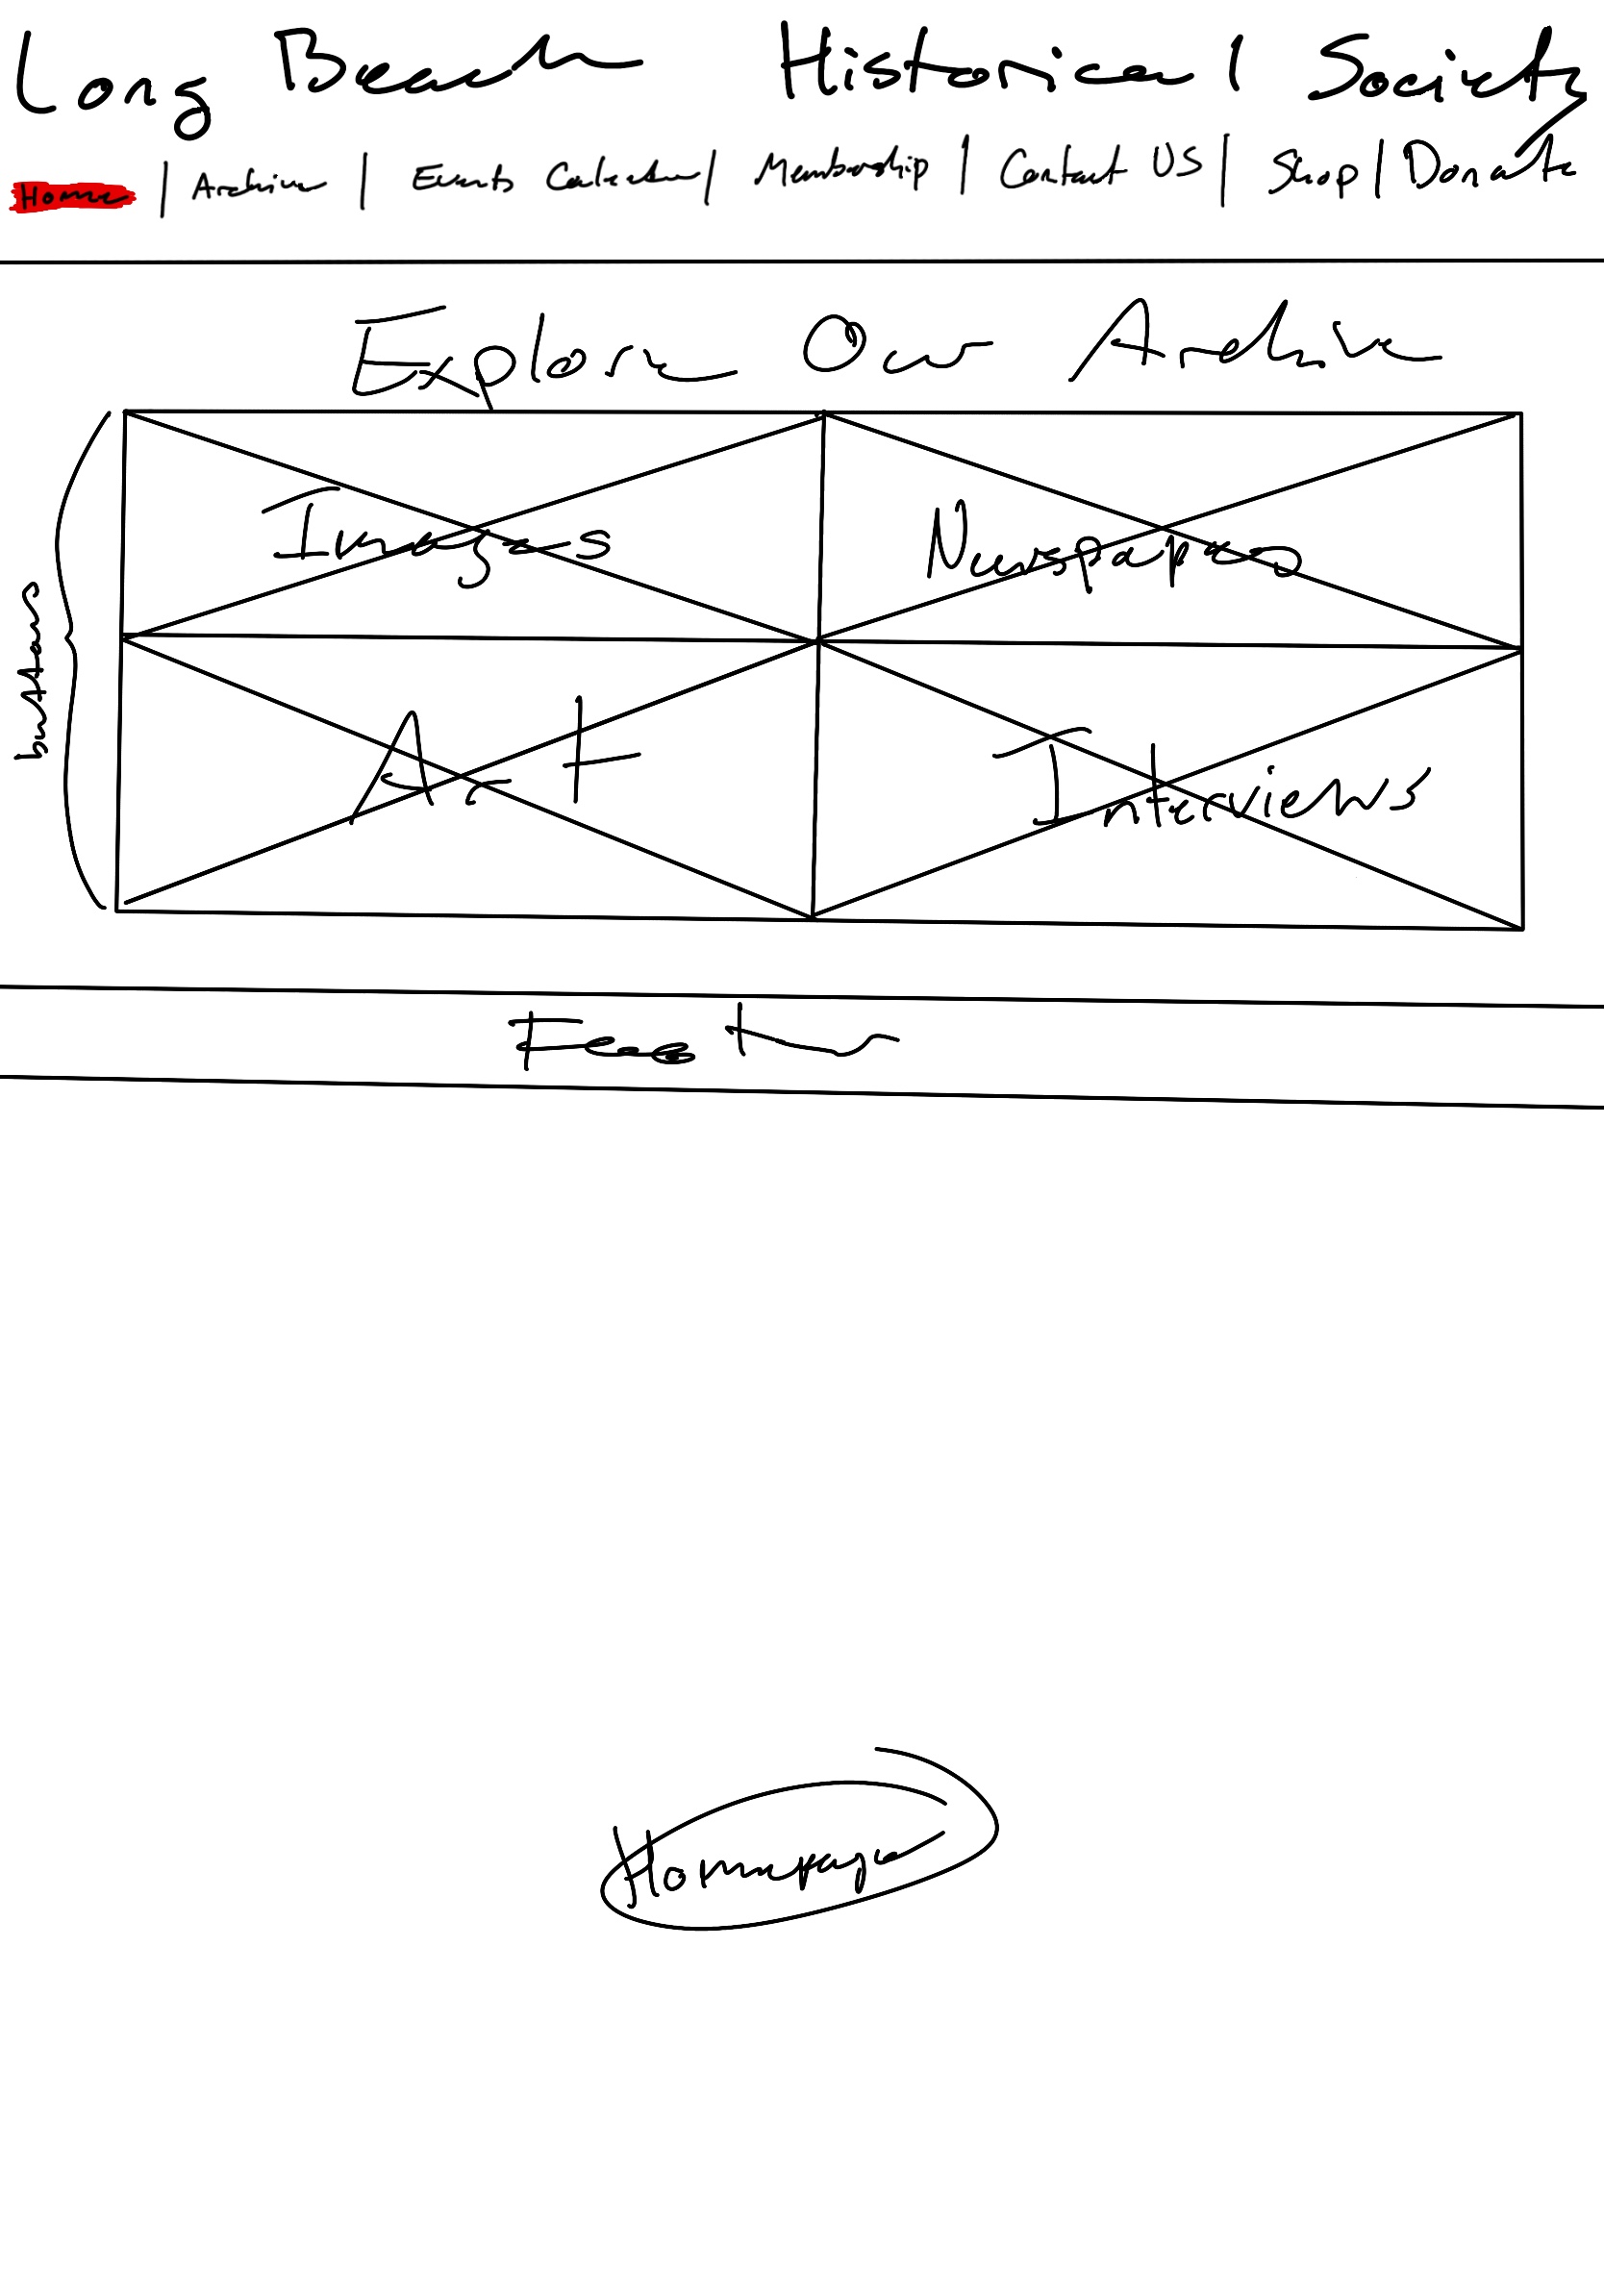 Long Beach Historical Society
Home | Archive | Events Calendar | Membership | Contact US | Shop | Donate
Explore Our Archive
Images
Newspapers
buttons
Art
Interviews
Homepage